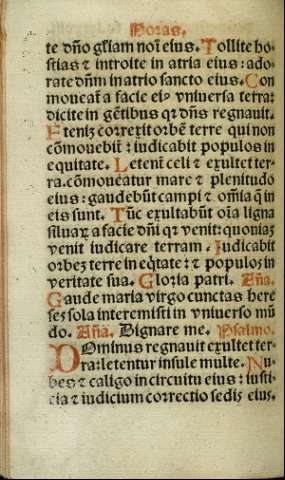 Horas.
te dño gl̃iam noĩ eius. Tollite ho
stias ⁊ introite in atria eius: ado
rate dñm in atrio sancto eius. Con
moueat̃ a facie eiꝰ vniuersa terra:
dicite in gẽtibus qꝛ dñs regnauit.
Eteniʒ correxit orbẽ terre qui non
cõmouebit̃: iudicabit populos in
equitate. Letent̃ celi ⁊ exultet ter
ra. cõmoueatur mare ⁊ plenitudo
eius: gaudebũt campi ⁊ om̃ia q̃ in
eis sunt. Tũc exultabũt oĩa ligna
siluaꝝ a facie dñi qꝛ venit: quoniaʒ
venit iudicare terram. Iudicabit
orbeʒ terre in eq̃tate: ⁊ populos in
veritate sua. Gloria patri. Aña.
Gaude maria virgo cunctas here
ses sola interemisti in vniuerso mũ
do. Aña. Dignare me. Psalmo.
Dominus regnauit exultet ter
ra: letentur insule multe. Nu
bes ⁊ caligo in circuitu eius: iusti
cia ⁊ iudicium correctio sedis eius.